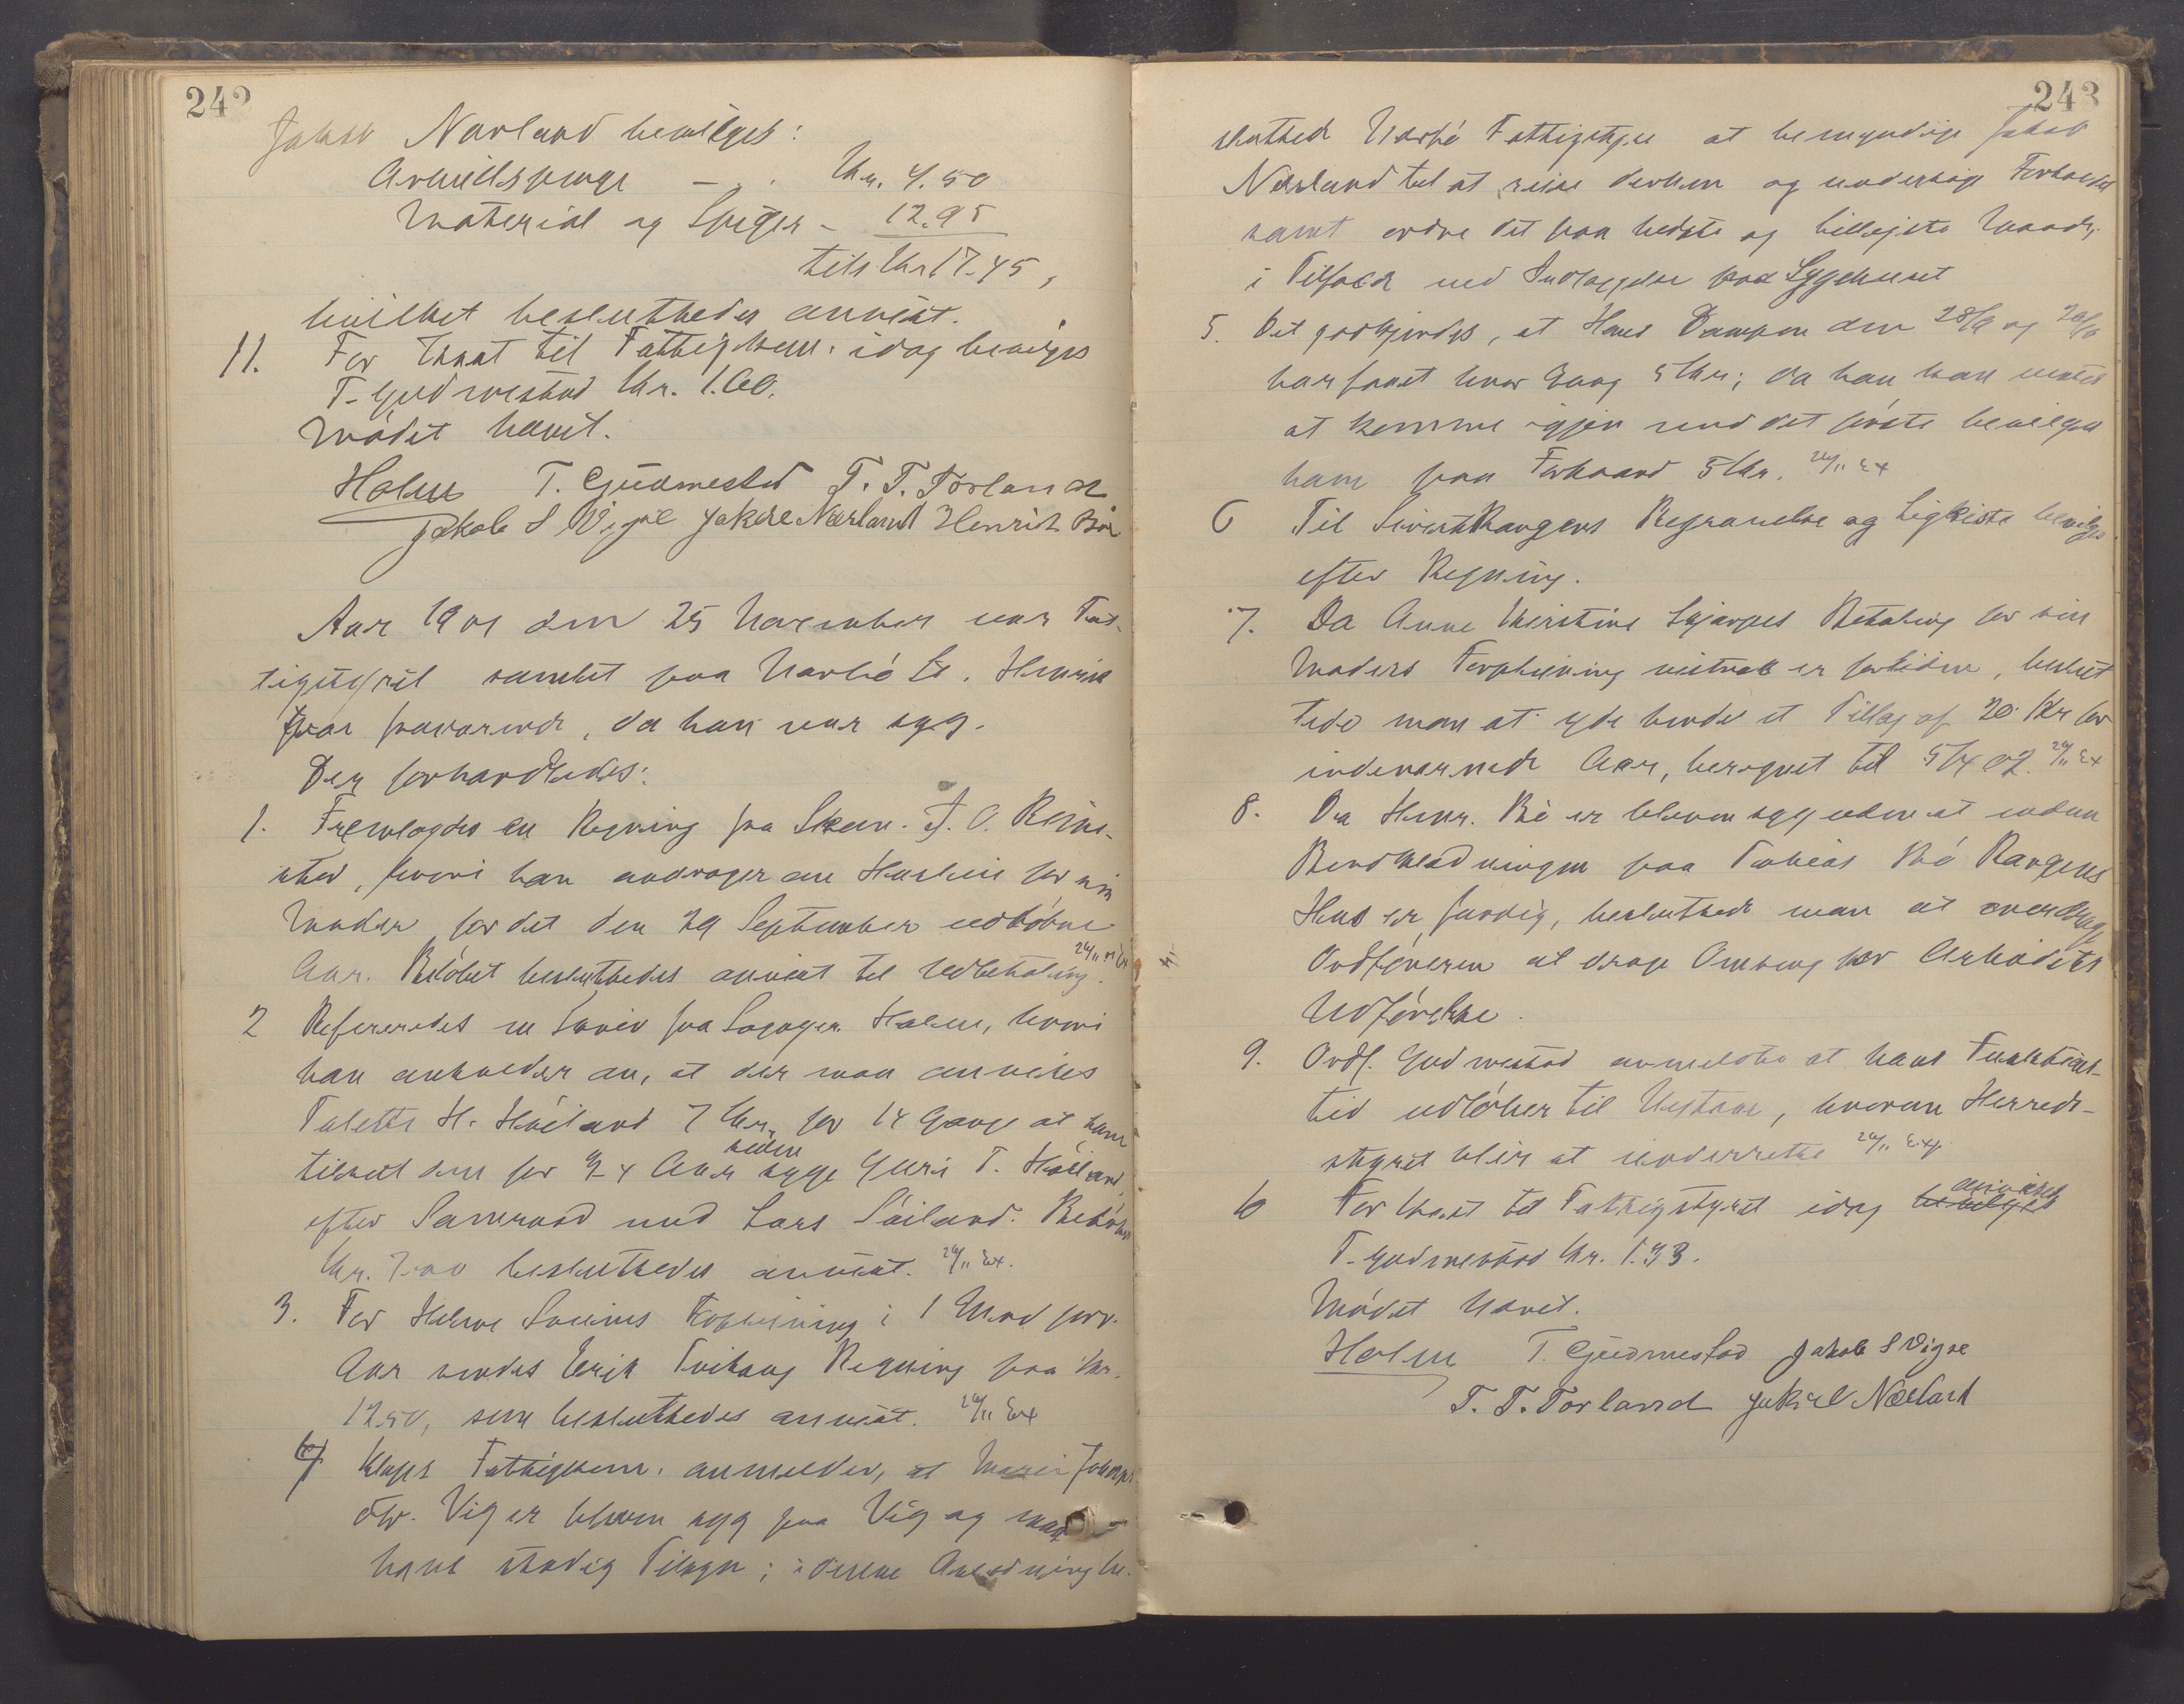 242
Jakob Nærland bevilges:
Arbeidspenge — . Kr. 4.50
Material og Spiger - 12.95
tils Kr 17.45,
hvilket besluttedes anvist.
11. For Skat til Fattigkom. idag bevilges
T. Gudmestad Kr. 1.00.
Mødet hævet.
Holm T. Gudmestad T. T. Torland
Jakob S Vigre Jakob Nærland Henrik Bø
Aar 1901 den 25 November var Fat-
tigstyret samlet paa Narbø St. Henrik
fraværende, da han var syg.
Der forhandledes:
1. Fremlagdes en Regning fra A. O. Reime-
stad, hvori han andrager om Husleie for sin
Moder for det den 29 September udløbne
Aar. Beløbet besluttedes anvist til Udbetaling. 26/11
2 Refereredes en Skriv fra Sogepr. Holm, hvori
han anholder om, at der maa anvises
H. Høiland 7 Kr. for 14 Gange at ham
tilseet den for 4 Aar siden syge Guri T. Høiland,
efter Samraad med Lars Søiland. Beløbet
Kr. 7.00 besluttedes anvist. 26/11 Ex.
3. For Helene Forpleining i 1 Mnd forr.
Aar sendes Erik Tvihaug Regning paa Kr.
12.50, som besluttedes anvist. 26/11 Ex
4 Kleps Fattigkom. anmelder, at
Vig er bleven syg paa Vig og maa
have stadig Tilsyn; i denne Anledning be-
243
sluttede Narbø Fattigstyre at bemyndige Jakob
Nærland til at reise derhen og undersøge Forholdet
samt ordne det paa bedste og billigste Maade,
i Tilfælde med Indlæggelse paa Sygehuset
5. Det godkjendes, at Hans den 28/9 og
har faaet hver Gang 5 Kr; da han kan ventes
at komme igjen med det første bevilges
ham paa Forhaand 5 Kr. 26/11 Ex
6 Til Sivert Haugens Begravelse og Ligkiste bevilges
efter Regning.
7. Da Anne Kirstine Skjærpes Betaling for sin
Moders Forpleining er forliden, beslut
tede man at yde hende et Tillæg af 20 Kr for
indeværende Aar, beregnet til 5/4 02. 26/11 Ex
8. Da Henr. Bø er bleven syg uden at endnu
Bordklædningen paa Tobias Bø Haugens
Hus er færdig, besluttede man at overdrage
Ordføreren at drage Omsorg for Arbeidets
Udførelse.
9. Ordf. Gudmestad anmeldte at hans Funktions-
tid udløber til Nytaar, hvorom Herreds-
styret blir at underrette 26/11 Exp.
10 For Skat til Fattigstyret idag bevilges anvises
T. Gudmestad Kr. 1.33.
Mødet hævet.
Holm T. Gudmestad Jakob S Vigre
T. T. Torland Jakob Nærland